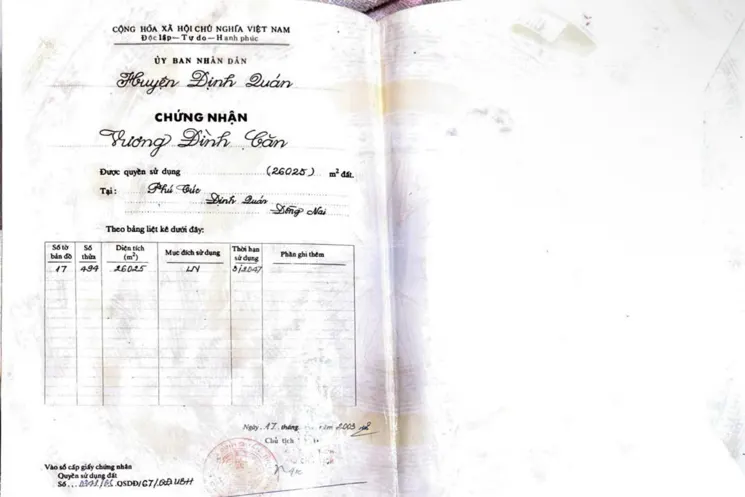 CỘNG HÒA XÃ HỘI CHỦ NGHĨA VIỆT NAM
Độc lập – Tự do – Hạnh phúc
ỦY BAN NHÂN DÂN
Huyện Định Quán
CHỨNG NHẬN
Vương Đình Căn
Được quyền sử dụng (26025) m² đất.
Tại: Phú Túc
Định Quán
Đồng Nai
Theo bảng liệt kê dưới đây:
Số tờ bản đồ Số thửa Diện tích (m²) Mục đích sử dụng Thời hạn sử dụng Phần ghi thêm
17 494 26025 LN 3/2047
Ngày 17 tháng năm 2003
Chủ tịch
Vào sổ cấp giấy chứng nhận
Quyền sử dụng đất
Số QSDĐ/G7/